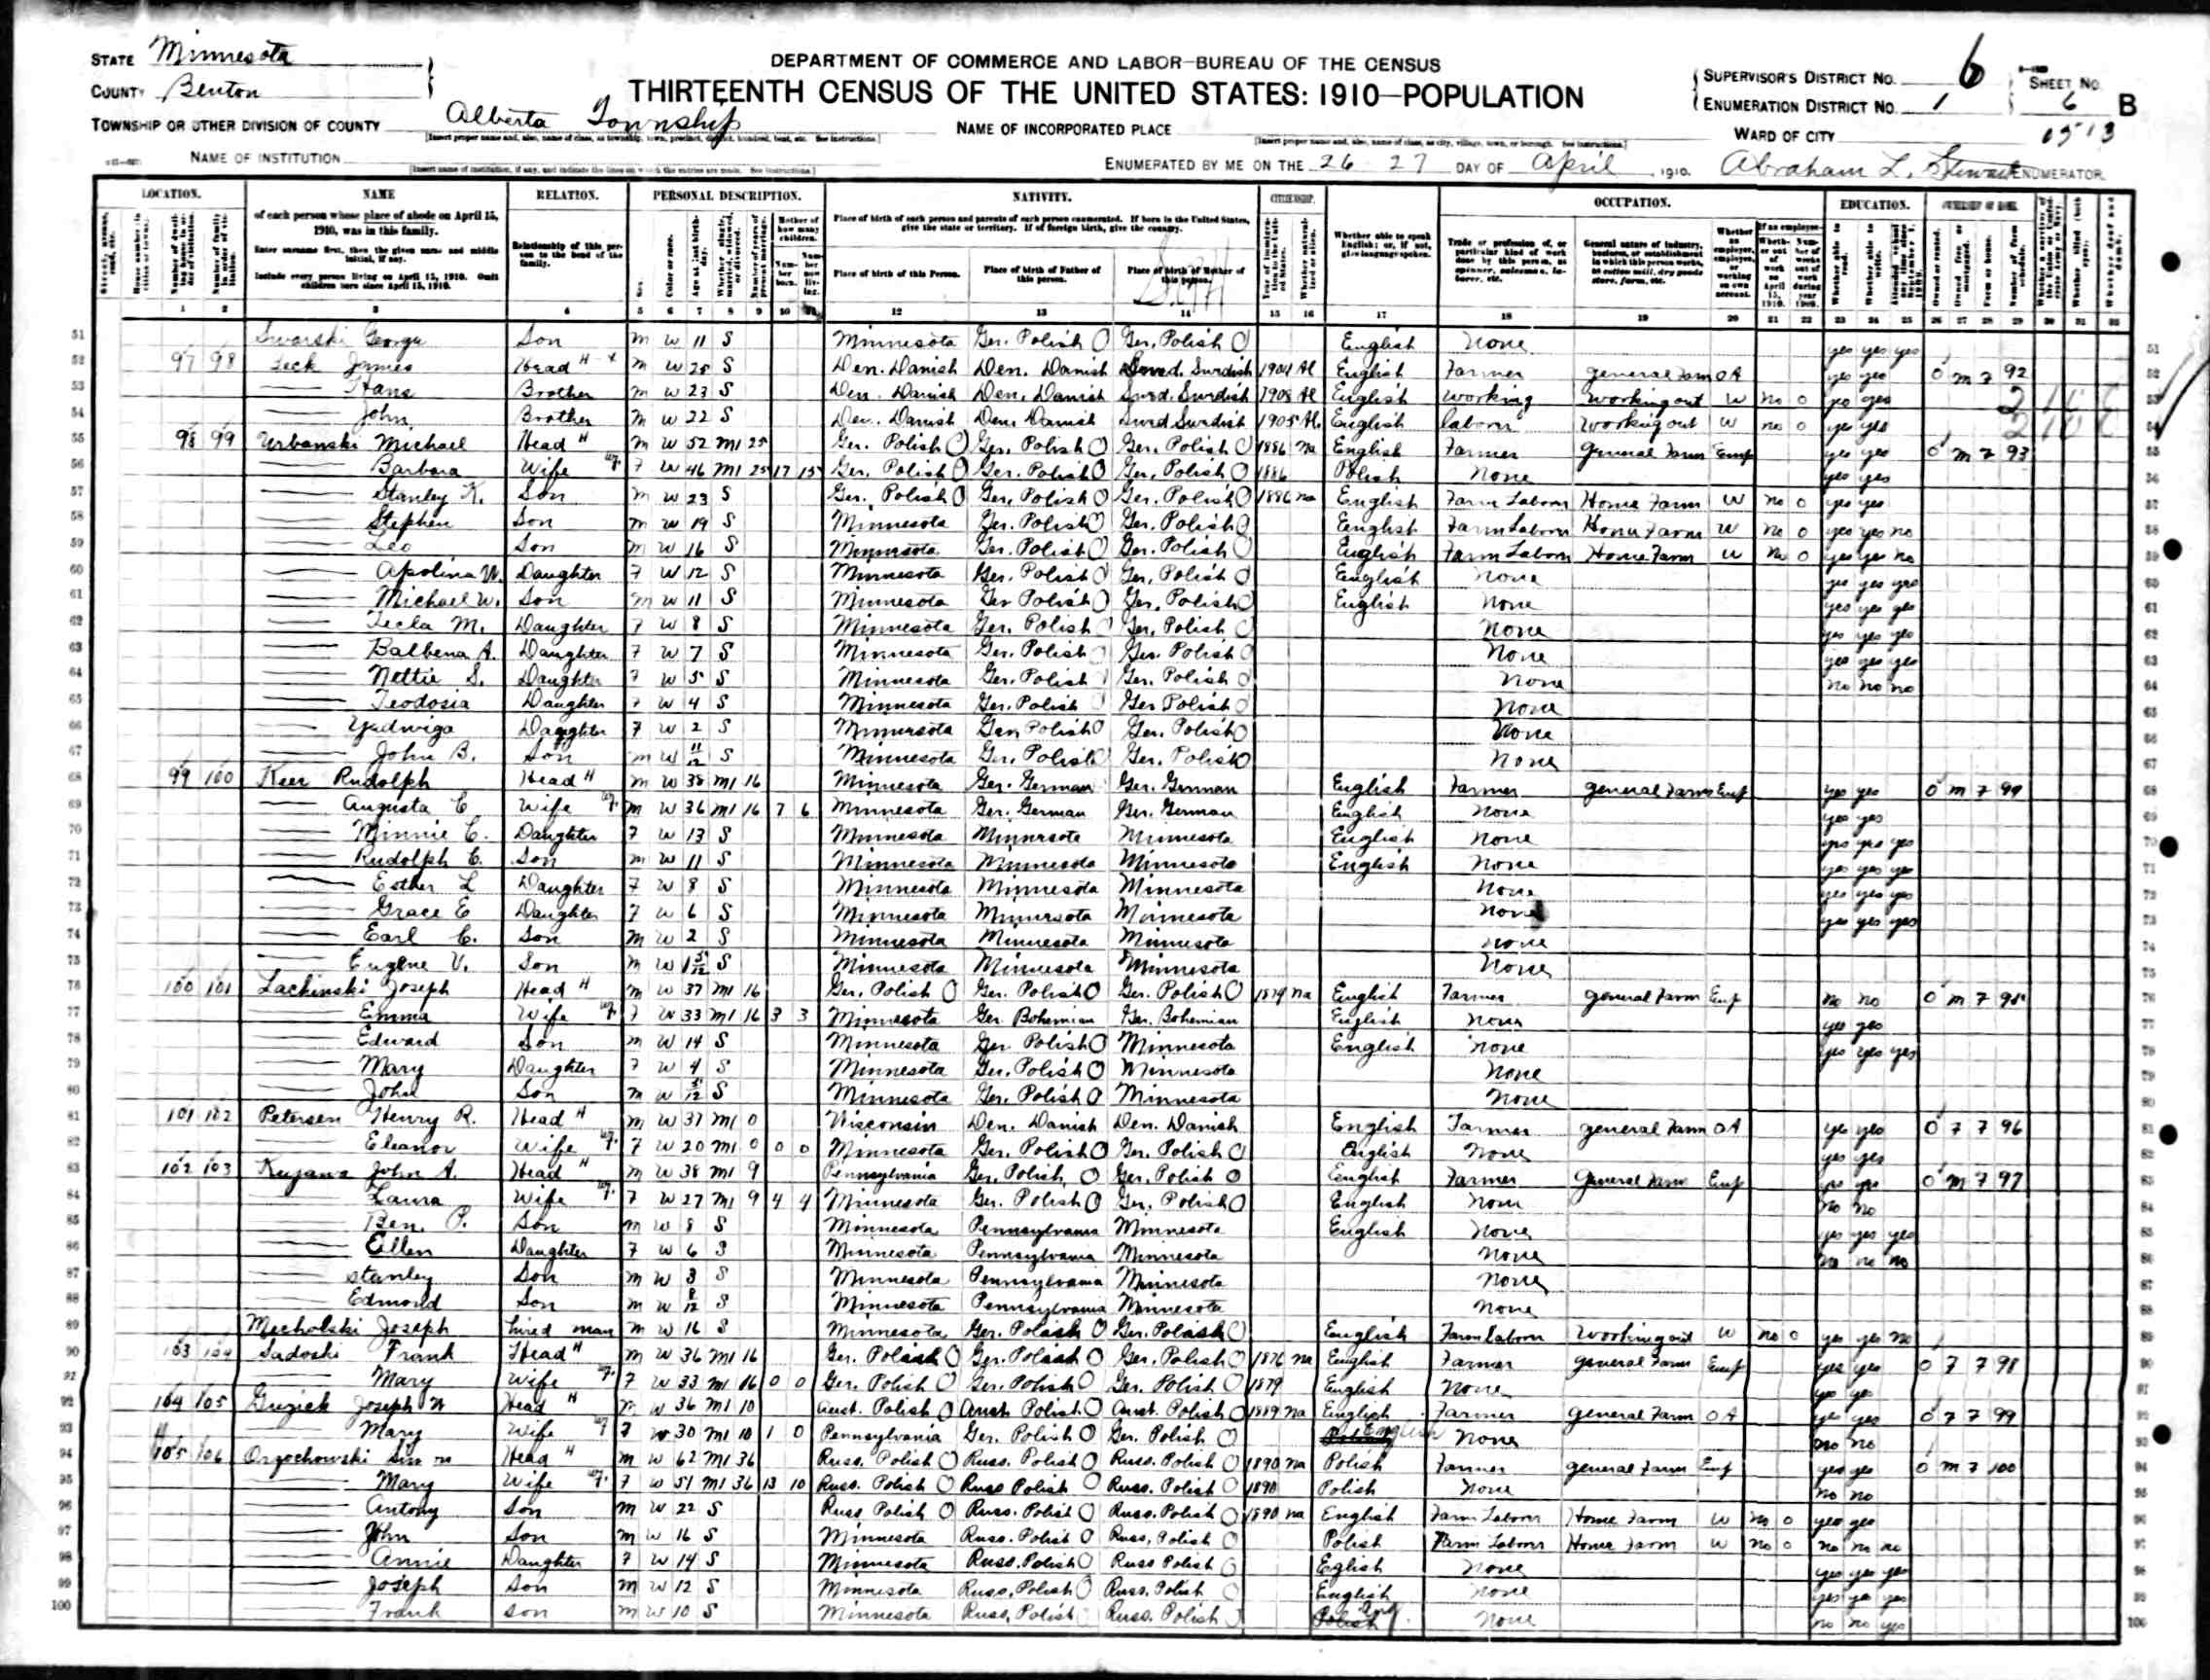 STATE Minnesota
COUNTY Benton
TOWNSHIP OR OTHER DIVISION OF COUNTY Alberta Township
[Insert proper name and, also, name of class, as township, town, precinct, district, hundred, beat, etc. See instructions.]
NAME OF INSTITUTION
[Insert name of institution, if any, and indicate the lines on which the entries are made. See instructions.]
DEPARTMENT OF COMMERCE AND LABOR—BUREAU OF THE CENSUS
THIRTEENTH CENSUS OF THE UNITED STATES: 1910—POPULATION
NAME OF INCORPORATED PLACE
[Insert proper name and, also, name of class, as city, village, town, or borough. See instructions.]
ENUMERATED BY ME ON THE 26 27 DAY OF April, 1910. Abraham L. ENUMERATOR.
SUPERVISOR'S DISTRICT NO. 6
ENUMERATION DISTRICT NO. 1
SHEET NO. 6 B
WARD OF CITY
LOCATION. NAME RELATION. PERSONAL DESCRIPTION. NATIVITY. CITIZENSHIP. OCCUPATION. EDUCATION. OWNERSHIP OF HOME.
of each person whose place of abode on April 15, 1910, was in this family.
Enter surname first, then the given name and middle initial, if any.
Include every person living on April 15, 1910. Omit children born since April 15, 1910.
Relationship of this person to the head of the family.
Place of birth of each person and parents of each person enumerated. If born in the United States, give the state or territory. If of foreign birth, give the country.
Place of birth of this Person. Place of birth of Father of this person. Place of birth of Mother of this person.
Whether able to speak English; or, if not, give language spoken.
1 2 3 4 5 6 7 8 9 10 11 12 13 14 15 16 17 18 19 20 21 22 23 24 25 26 27 28 29 30 31 32
51 George Son m w 11 S Minnesota Ger. Polish Ger. Polish English None yes yes yes
52 97 98 James Head m w S Den. Danish Den. Danish Swed. Swedish Al English Farmer general Farm OA yes yes O m F 92
53 Hans Brother m w 23 S Den. Danish Den. Danish Swed. Swedish 1908 Al English working working out W no 0 yes yes
54 John Brother m w 22 S Den. Danish Den. Danish Swed Swedish 1905 Al English labor working out W no 0 yes yes
55 98 99 Urbanski Michael Head m w 52 M1 25 Ger. Polish Ger. Polish Ger. Polish 1886 Na English Farmer general Farm Emp yes yes O m F 93
56 Barbara Wife F w 46 M1 25 17 15 Ger. Polish Ger. Polish Ger. Polish 1886 Polish None yes yes
57 Stanley K. Son m w 23 S Ger. Polish Ger. Polish Ger. Polish 1886 na English Farm Labor Home Farm W no 0 yes yes
58 Stephen Son m w 19 S Minnesota Ger. Polish Ger. Polish English Farm Labor Home Farm W no 0 yes yes no
59 Leo Son m w 16 S Minnesota Ger. Polish Ger. Polish English Farm Labor Home Farm W no 0 yes yes no
60 Apolina W. Daughter F w 12 S Minnesota Ger. Polish Ger. Polish English None yes yes yes
61 Michael W. Son m w 11 S Minnesota Ger Polish Ger. Polish English None yes yes yes
62 Tecla M. Daughter F w 8 S Minnesota Ger. Polish Ger. Polish None yes yes yes
63 Balbena A. Daughter F w 7 S Minnesota Ger. Polish Ger. Polish None yes yes yes
64 Nettie S. Daughter F w 5 S Minnesota Ger. Polish Ger. Polish None no no no
65 Teodosia Daughter F w 4 S Minnesota Ger. Polish Ger Polish None
66 Yadwiga Daughter F w 2 S Minnesota Ger Polish Ger. Polish None
67 John B. Son m w 11/12 S Minnesota Ger. Polish Ger. Polish None
68 99 100 Keer Rudolph Head m w 38 M1 16 Minnesota Ger. German Ger. German English Farmer general Farm Emp yes yes O m F
69 Augusta C Wife m w 36 M1 16 7 6 Minnesota Ger. German Ger. German English None yes yes
70 Minnie C. Daughter F w 13 S Minnesota Minnesota Minnesota English None yes yes yes
71 Rudolph C. Son m w 11 S Minnesota Minnesota Minnesota English None yes yes yes
72 Esther L Daughter F w 8 S Minnesota Minnesota Minnesota None yes yes yes
73 Grace E Daughter F w 6 S Minnesota Minnesota Minnesota None yes yes yes
74 Earl C. Son m w 2 S Minnesota Minnesota Minnesota None
75 Eugene V. Son m w 1 5/12 S Minnesota Minnesota Minnesota None
76 100 101 Lachinski Joseph Head m w 37 M1 16 Ger. Polish Ger. Polish Ger. Polish 1879 na English Farmer general Farm Emp no no O m F 95
77 Emma Wife F w 33 M1 16 3 3 Minnesota Ger. Bohemian Ger. Bohemian English None yes yes
78 Edward Son m w 14 S Minnesota Ger. Polish Minnesota English None yes yes yes
79 Mary Daughter F w 4 S Minnesota Ger. Polish Minnesota None
80 John Son m w S Minnesota Ger. Polish Minnesota None
81 101 102 Petersen Henry R. Head m w 37 M1 0 Wisconsin Den. Danish Den. Danish English Farmer general Farm OA yes yes O F F 96
82 Eleanor Wife F w 20 M1 0 0 0 Minnesota Ger. Polish Ger. Polish English None yes yes
83 102 103 Kujawa John A. Head m w 38 M1 9 Pennsylvania Ger. Polish Ger. Polish English Farmer general Farm Emp yes yes O m F 97
84 Laura Wife F w 27 M1 9 4 4 Minnesota Ger. Polish Ger. Polish English None no no
85 Ben. P. Son m w 8 S Minnesota Pennsylvania Minnesota English None yes yes yes
86 Ellen Daughter F w 6 S Minnesota Pennsylvania Minnesota None no no no
87 Stanley Son m w 3 S Minnesota Pennsylvania Minnesota None
88 Edmond Son m w S Minnesota Pennsylvania Minnesota None
89 Mecholski Joseph hired man m w 16 S Minnesota Ger. Polish Ger. Polish English Farm labor Working out W no 0 yes yes no
90 103 104 Sadoski Frank Head m w 36 M1 16 Ger. Polish Ger. Polish Ger. Polish 1876 na English Farmer general Farm Emp yes yes O F F 98
91 Mary Wife F w 33 M1 16 0 0 Ger. Polish Ger. Polish Ger. Polish 1879 English None yes yes
92 104 105 Joseph Head m w 36 M1 10 Aust. Polish Aust. Polish Aust. Polish 1889 na English Farmer general Farm OA yes yes O F F 99
93 Mary Wife F w 30 M1 10 1 0 Pennsylvania Ger. Polish Ger. Polish English None no no
94 105 106 Head m w 62 M1 36 Russ. Polish Russ. Polish Russ. Polish 1890 na Polish Farmer general Farm Emp yes yes O m F 100
95 Mary Wife F w 51 M1 36 13 10 Russ. Polish Russ Polish Russ. Polish 1890 Polish None no no
96 Antony Son m w 22 S Russ Polish Russ. Polish Russ. Polish 1890 na English Farm Labor Home Farm W no 0 yes yes
97 John Son m w 16 S Minnesota Russ. Polish Russ. Polish Polish Farm Labor Home Farm W no 0 no no no
98 Annie Daughter F w 14 S Minnesota Russ. Polish Russ Polish Eglish None yes yes yes
99 Joseph Son m w 12 S Minnesota Russ. Polish Russ. Polish English None yes yes yes
100 Frank Son m w 10 S Minnesota Russ. Polish Russ. Polish None no no yes